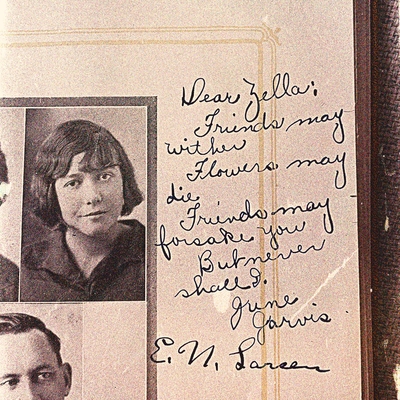 Dear Zella:
Friends may
wither
Flowers may
die
Friends may
forsake you
But never
shall I.
June
Jarvis.
E. N. Larsen